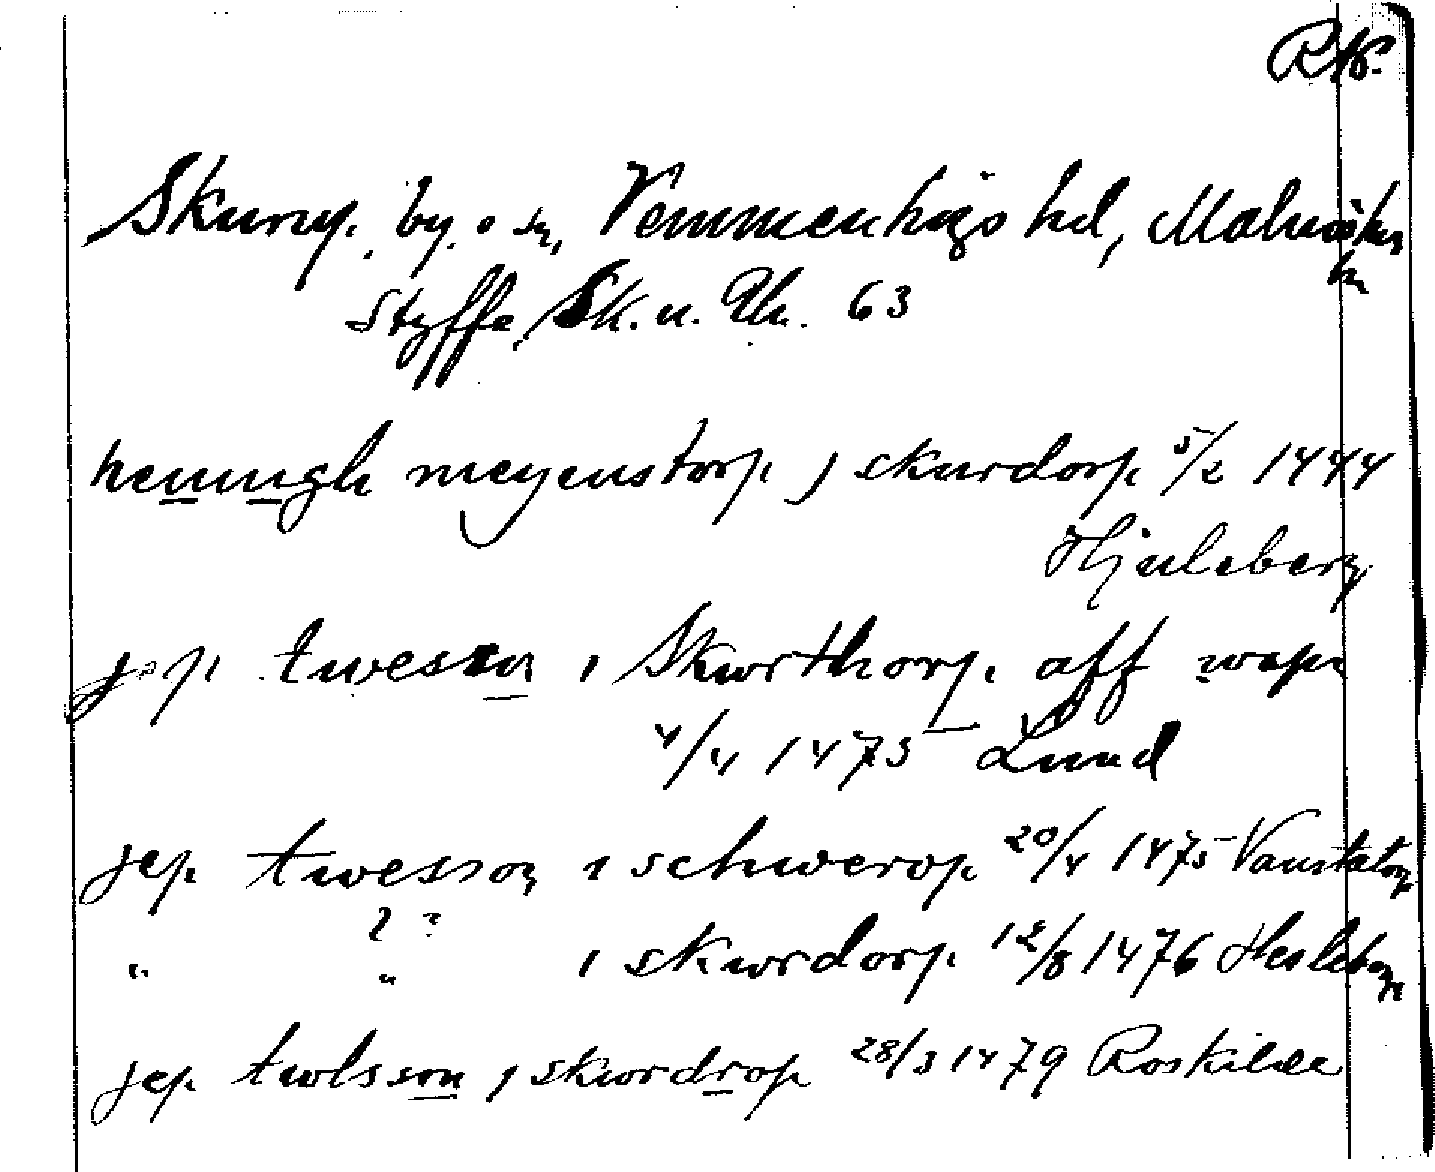 Skurup. by. o sn, Vemmenhögs hd, Malmöhus
ln
Styffe, Sk. u. Un. 63
henningh meyenstorp j skurdorp 5/2 1444
Hjuleberg
jep twesson i Skwrthorp aff wapn
4/4 1475 Lund
jep twesson i schwerop 20/4 1475
? ?
" " i skwrdorp 12/8 1476
jep twlsson j skwrdrop 28/3 1479 Roskilde